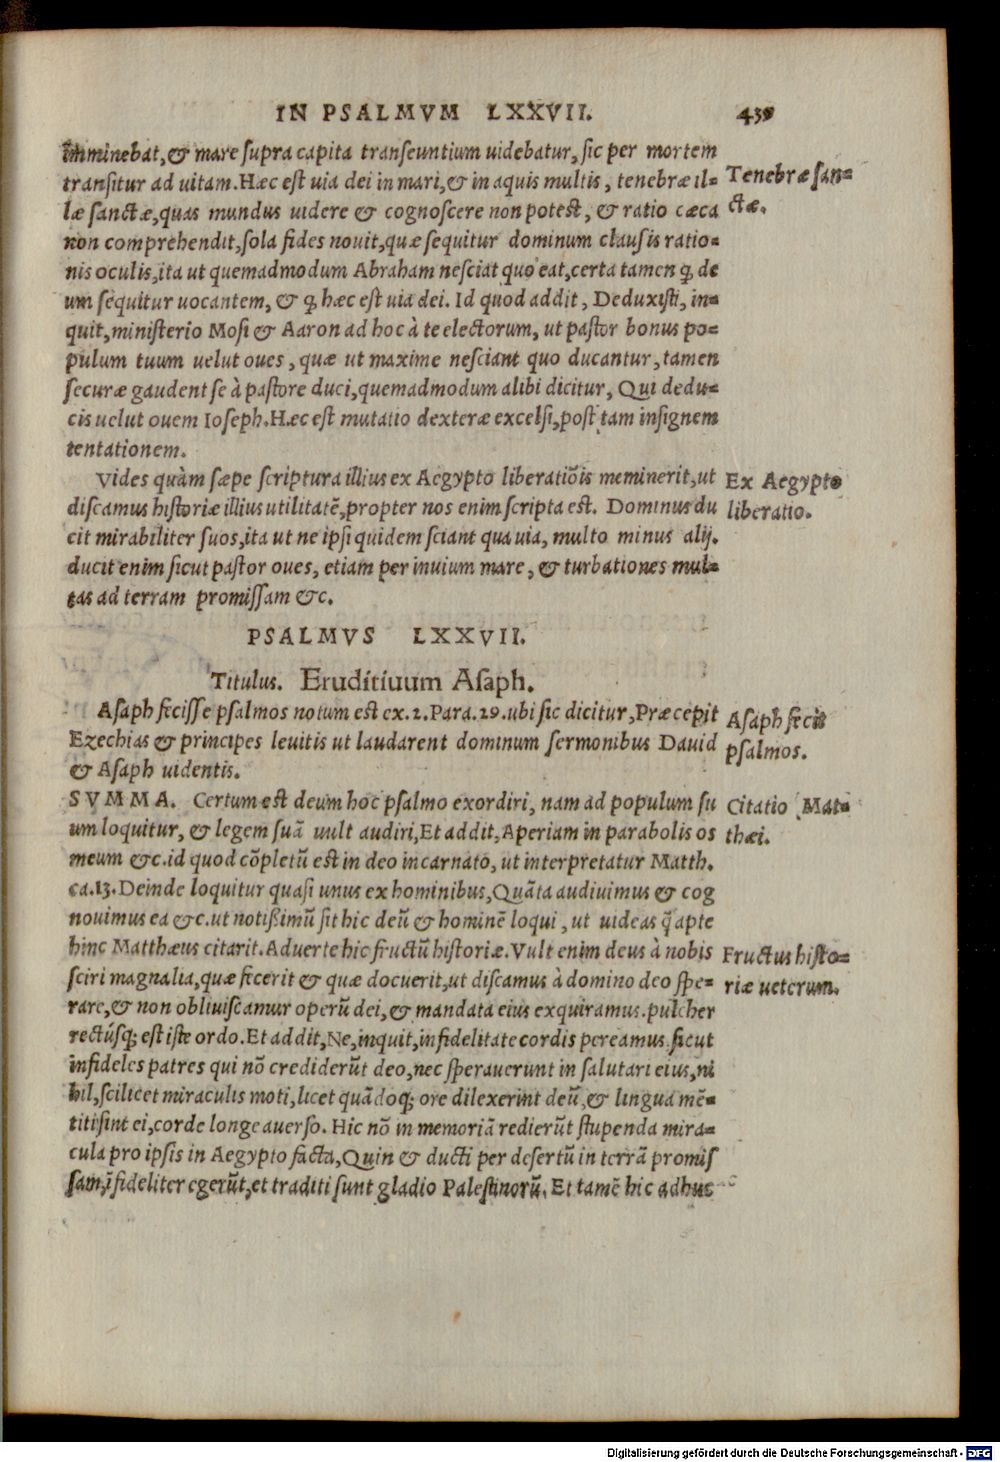 IN PSALMVM LXXVII. 439
imminebat, & mare supra capita transeuntium uidebatur, sic per mortem
transitur ad uitam. Hæc est uia dei in mari, & in aquis multis, tenebræ il-
læ sanctæ, quas mundus uidere & cognoscere non potest, & ratio cæca
non comprehendit, sola fides nouit, quæ sequitur dominum clausis ratio-
nis oculis, ita ut quemadmodum Abraham nesciat quo eat, certa tamen ꝙ de
um sequitur uocantem, & ꝙ hæc est uia dei. Id quod addit, Deduxisti, in-
quit, ministerio Mosi & Aaron ad hoc à te electorum, ut pastor bonus po-
pulum tuum uelut oues, quæ ut maxime nesciant quo ducantur, tamen
securæ gaudent se à pastore duci, quemadmodum alibi dicitur, Qui dedu-
cis uelut ouem Ioseph. Hæc est mutatio dexteræ excelsi, post tam insignem
tentationem.
Tenebræ san-
ctæ.
Vides quàm sæpe scriptura illius ex Aegypto liberatiōis meminerit, ut
discamus historiæ illius utilitatē, propter nos enim scripta est. Dominus du
cit mirabiliter suos, ita ut ne ipsi quidem sciant qua uia, multo minus alij.
ducit enim sicut pastor oues, etiam per inuium mare, & turbationes mul-
tas ad terram promissam &c.
Ex Aegypto
liberatio.
PSALMVS LXXVII.
Titulus. Eruditiuum Asaph.
Asaph fecisse psalmos notum est ex. 2. Para. 29. ubi sic dicitur, Præcepit
Ezechias & principes leuitis ut laudarent dominum sermonibus Dauid
& Asaph uidentis.
Asaph fecit
psalmos.
SVMMA. Certum est deum hoc psalmo exordiri, nam ad populum su
um loquitur, & legem suā uult audiri, Et addit, Aperiam in parabolis os
meum &c. id quod cōpletū est in deo incarnato, ut interpretatur Matth.
ca. 13. Deinde loquitur quasi unus ex hominibus, Quāta audiuimus & cog
nouimus ea &c. ut notißimū sit hic deū & hominē loqui, ut uideas q̄ apte
hinc Matthæus citarit. Aduerte hic fructū historiæ. Vult enim deus à nobis
sciri magnalia, quæ fecerit & quæ docuerit, ut discamus à domino deo spe-
rare, & non obliuiscamur operū dei, & mandata eius exquiramus. pulcher
rectúsq; est iste ordo. Et addit, Ne, inquit, infidelitate cordis pereamus sicut
infideles patres qui nō crediderūt deo, nec sperauerunt in salutari eius, ni
hil, scilicet miraculis moti, licet quādoq; ore dilexerint deū, & lingua mē-
titi sint ei, corde longe auerso. Hic nō in memoriā redierūt stupenda mira-
cula pro ipsis in Aegypto facta, Quin & ducti per desertū in terrā promis
sam, īfideliter egerūt, et traditi sunt gladio Palestinorū. Et tamē hic adhuc
Citatio Mat-
thæi.
Fructus histo-
riæ ueterum.
Digitalisierung gefördert durch die Deutsche Forschungsgemeinschaft - DFG